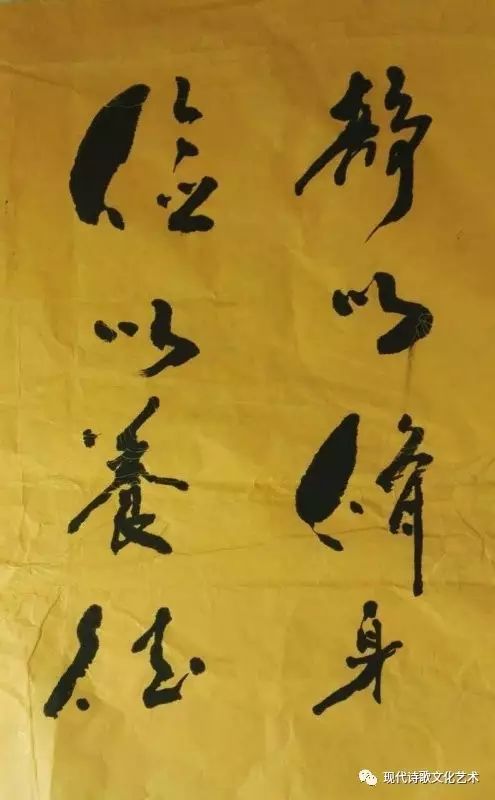 静以脩身
儉以養德
现代诗歌文化艺术